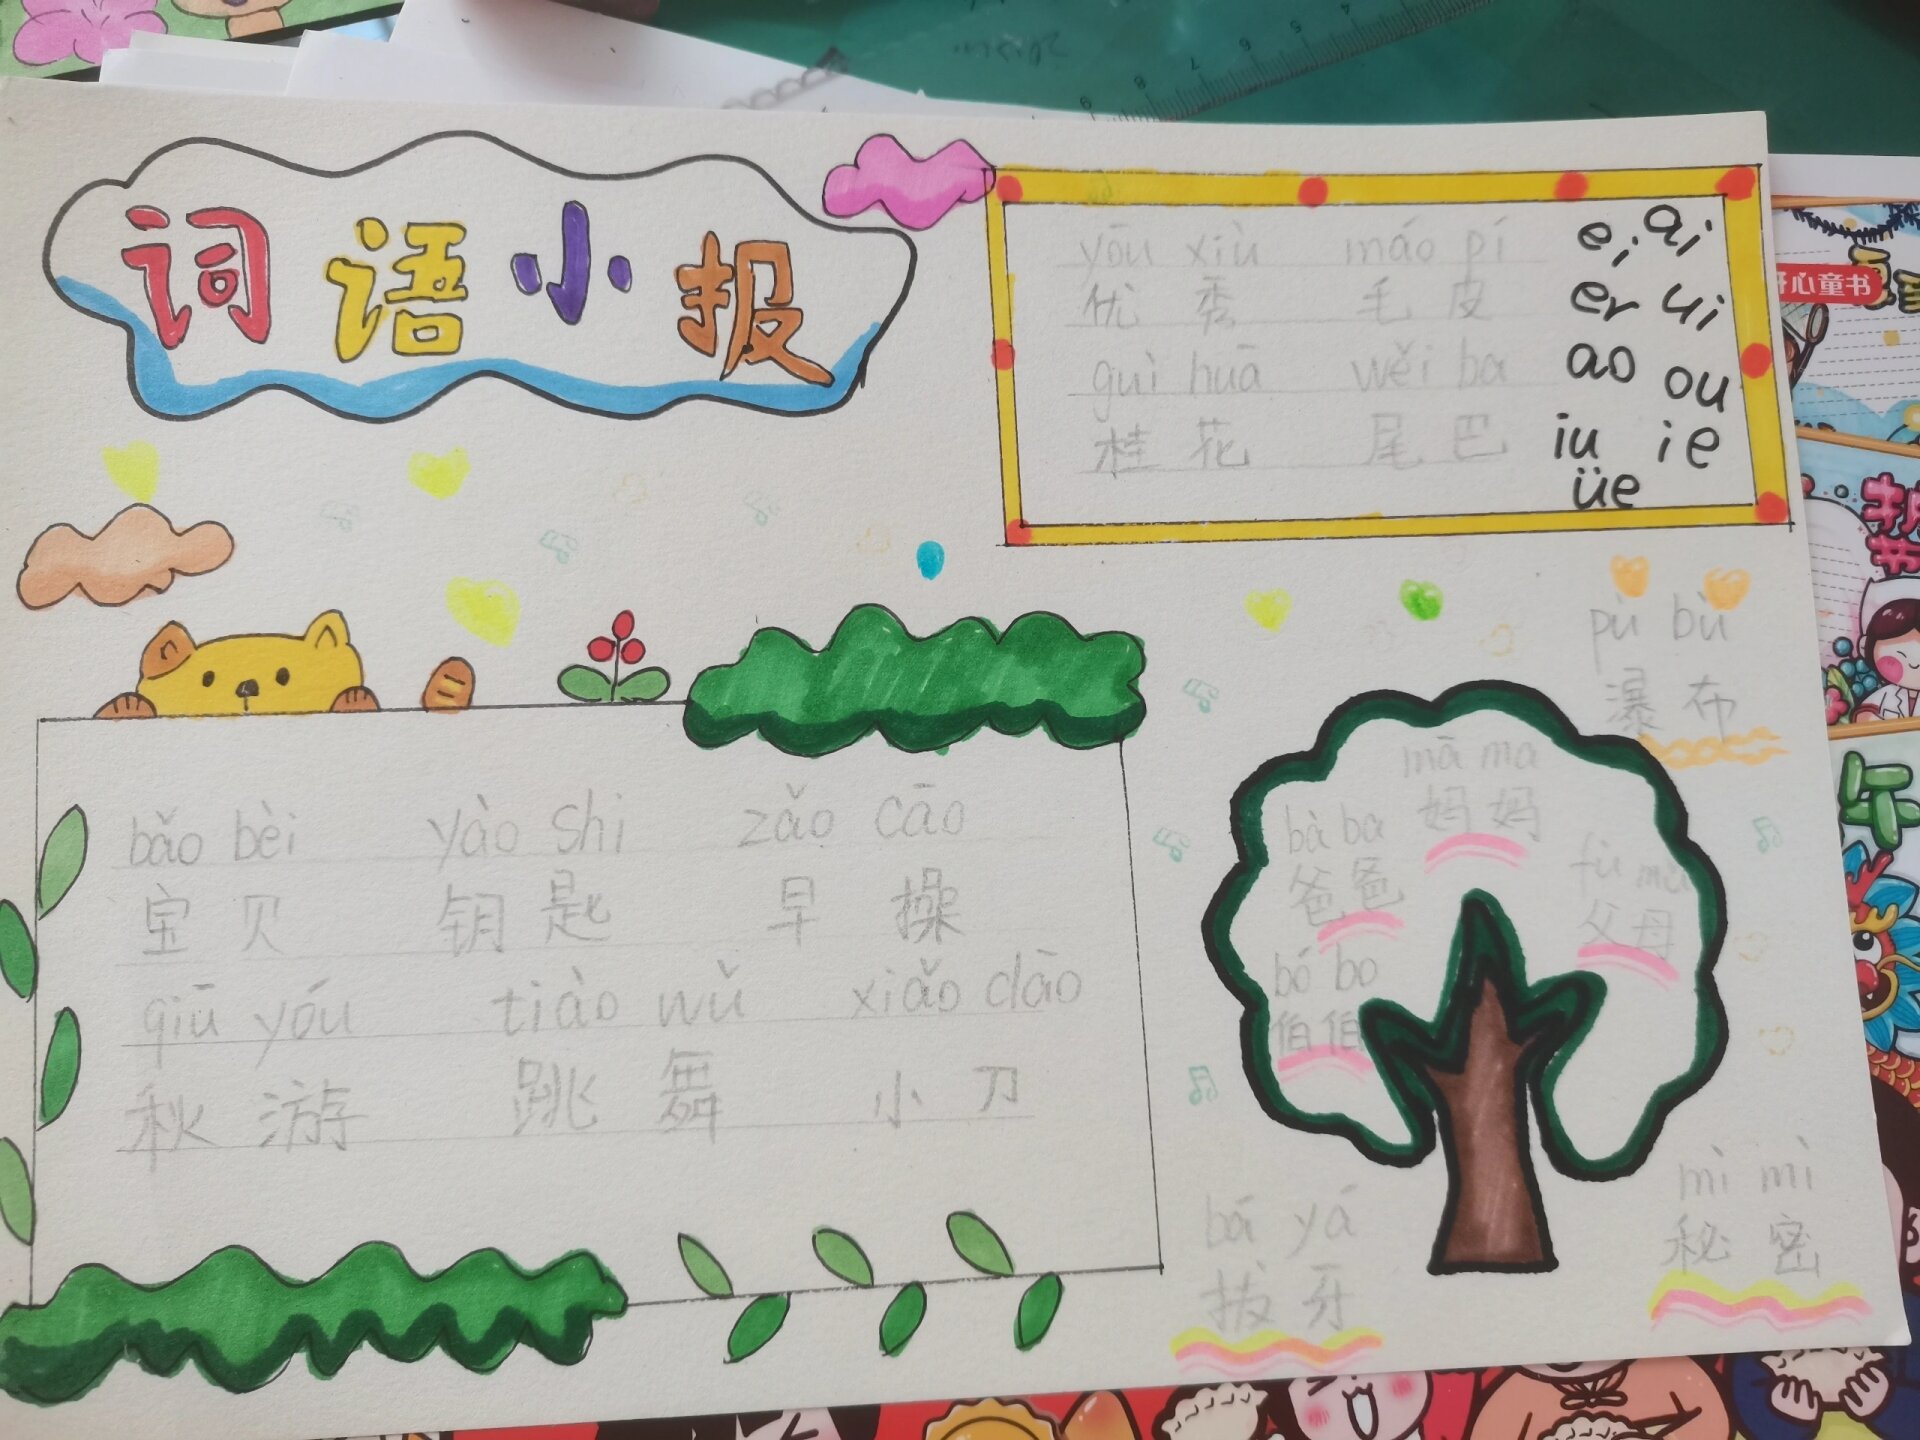 词语小报
yōu xiù máo pí
优秀 毛皮
guì huā wěi ba
桂花 尾巴
ei ai
er ui
ao ou
iu ie
üe
pù bù
瀑布
bǎo bèi yào shi zǎo cāo
宝贝 钥匙 早操
qiū yóu tiào wǔ xiǎo dāo
秋游 跳舞 小刀
mā ma
妈妈
bà ba
爸爸
fù mǔ
父母
bó bo
伯伯
bá yá
拔牙
mì mì
秘密
开心童书